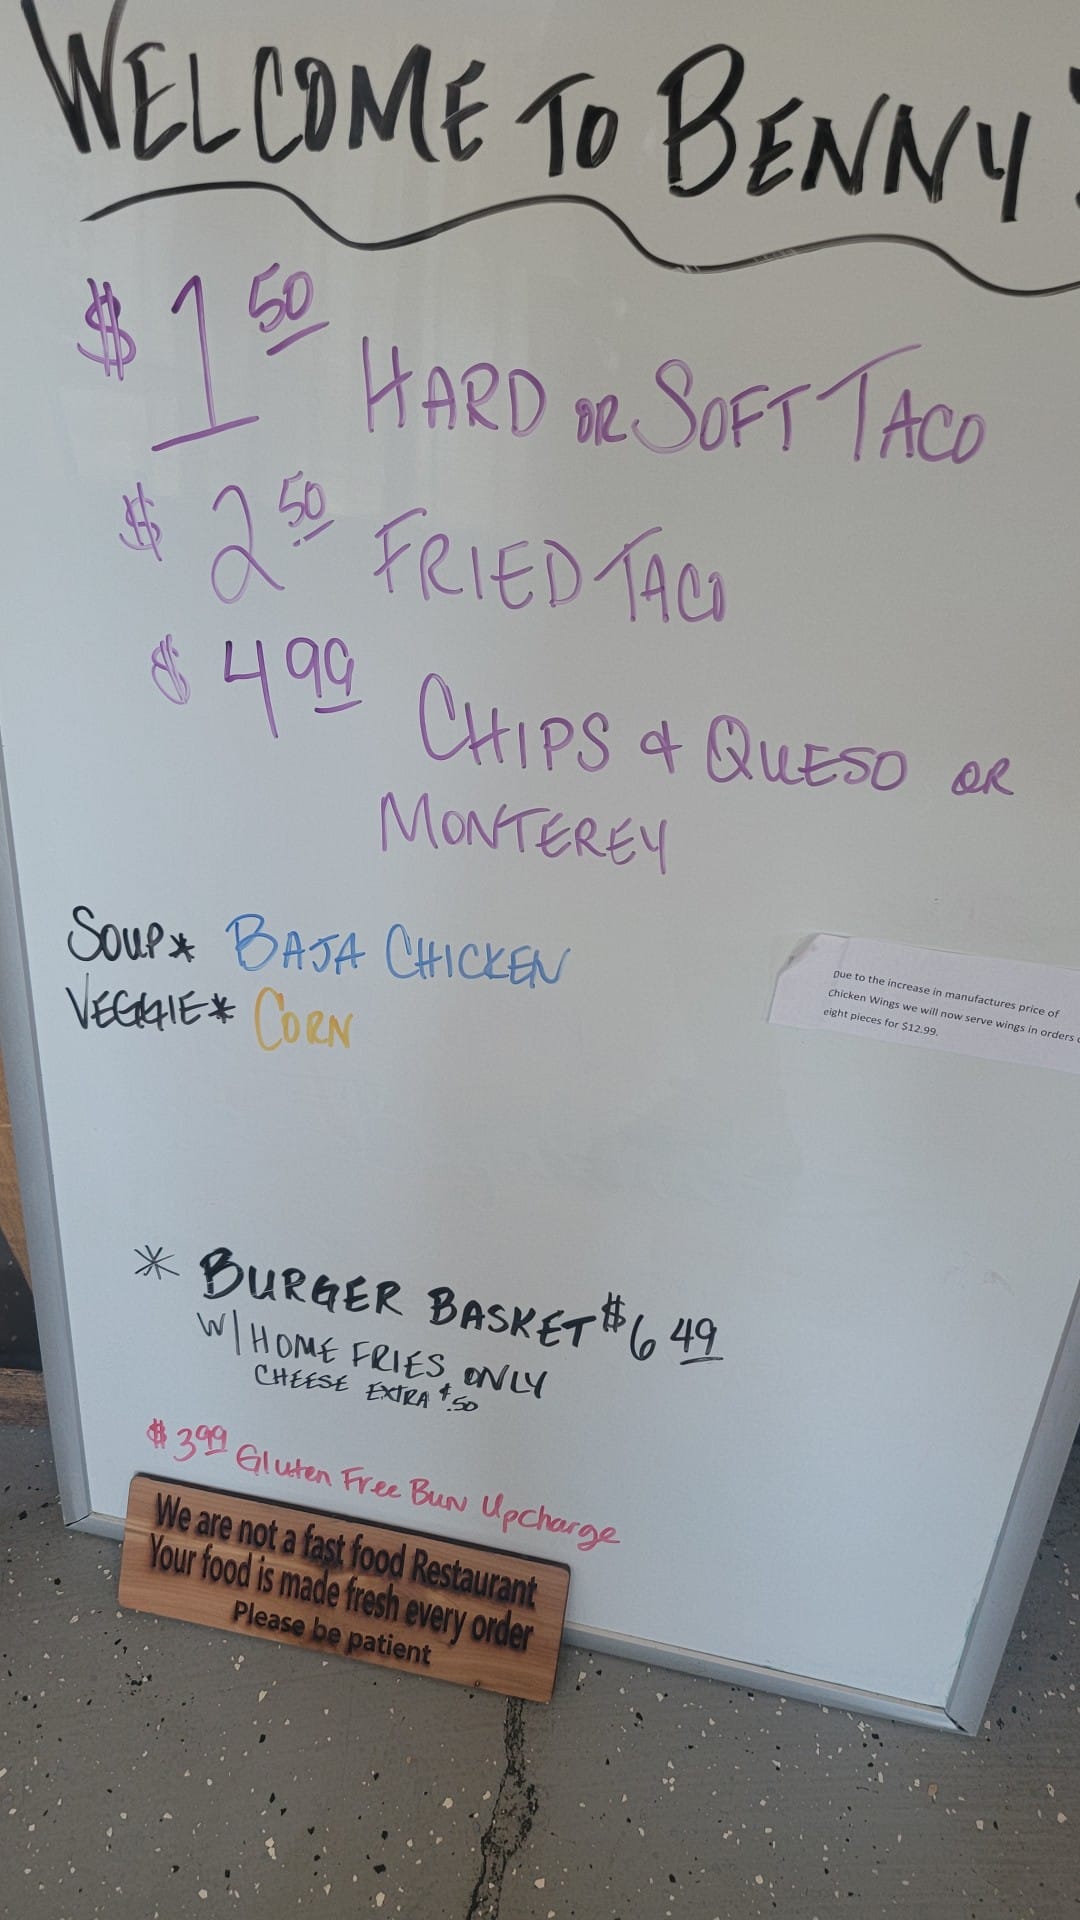 WELCOME TO BENNY'
$1 50 HARD OR SOFT TACO
$2 50 FRIED TACO
$4 99 CHIPS & QUESO OR
MONTEREY
SOUP* BAJA CHICKEN
VEGGIE* CORN
Due to the increase in manufactures price of
Chicken Wings we will now serve wings in orders
eight pieces for $12.99.
* BURGER BASKET $6 49
W/ HOME FRIES ONLY
CHEESE EXTRA $.50
$3 99 Gluten Free Bun Upcharge
We are not a fast food Restaurant
Your food is made fresh every order
Please be patient